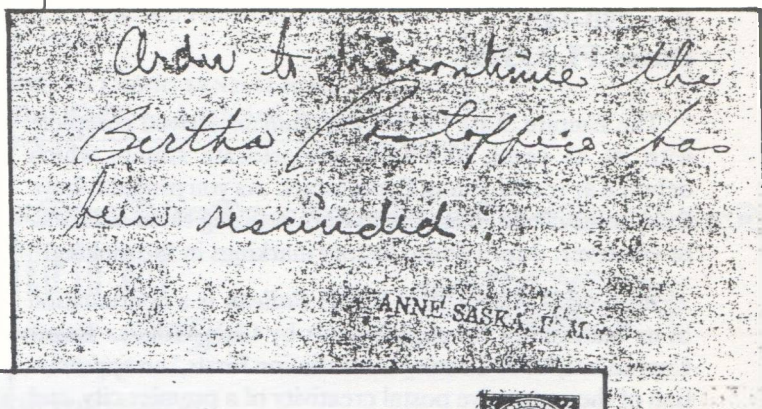 Order to discontinue the
Bertha Postoffice has
been rescinded.
ANNE SASKA, P. M.